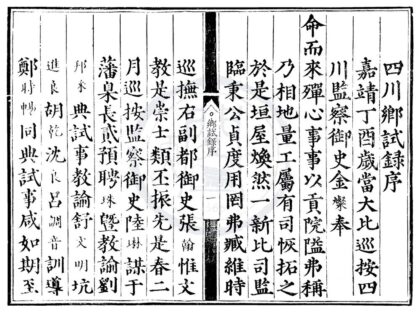 四川鄉試錄序
嘉靖丁酉歲當大比巡按四
川監察御史金燦奉
命而來殫心事事以貢院隘弗稱
乃相地量工屬有司恢拓之
於是垣屋煥然一新比司監
臨秉公貞度用罔弗臧維時
鄉試錄序
一
巡撫右副都御史張翰惟文
教是崇士類丕振先是春二
月巡按監察御史陸琳謀于
藩臬長貳預聘珠暨教諭劉
邦采典試事教諭舒文明坑
進良胡乾沈良呂調音訓導
鄭時暢同典試事咸如期至